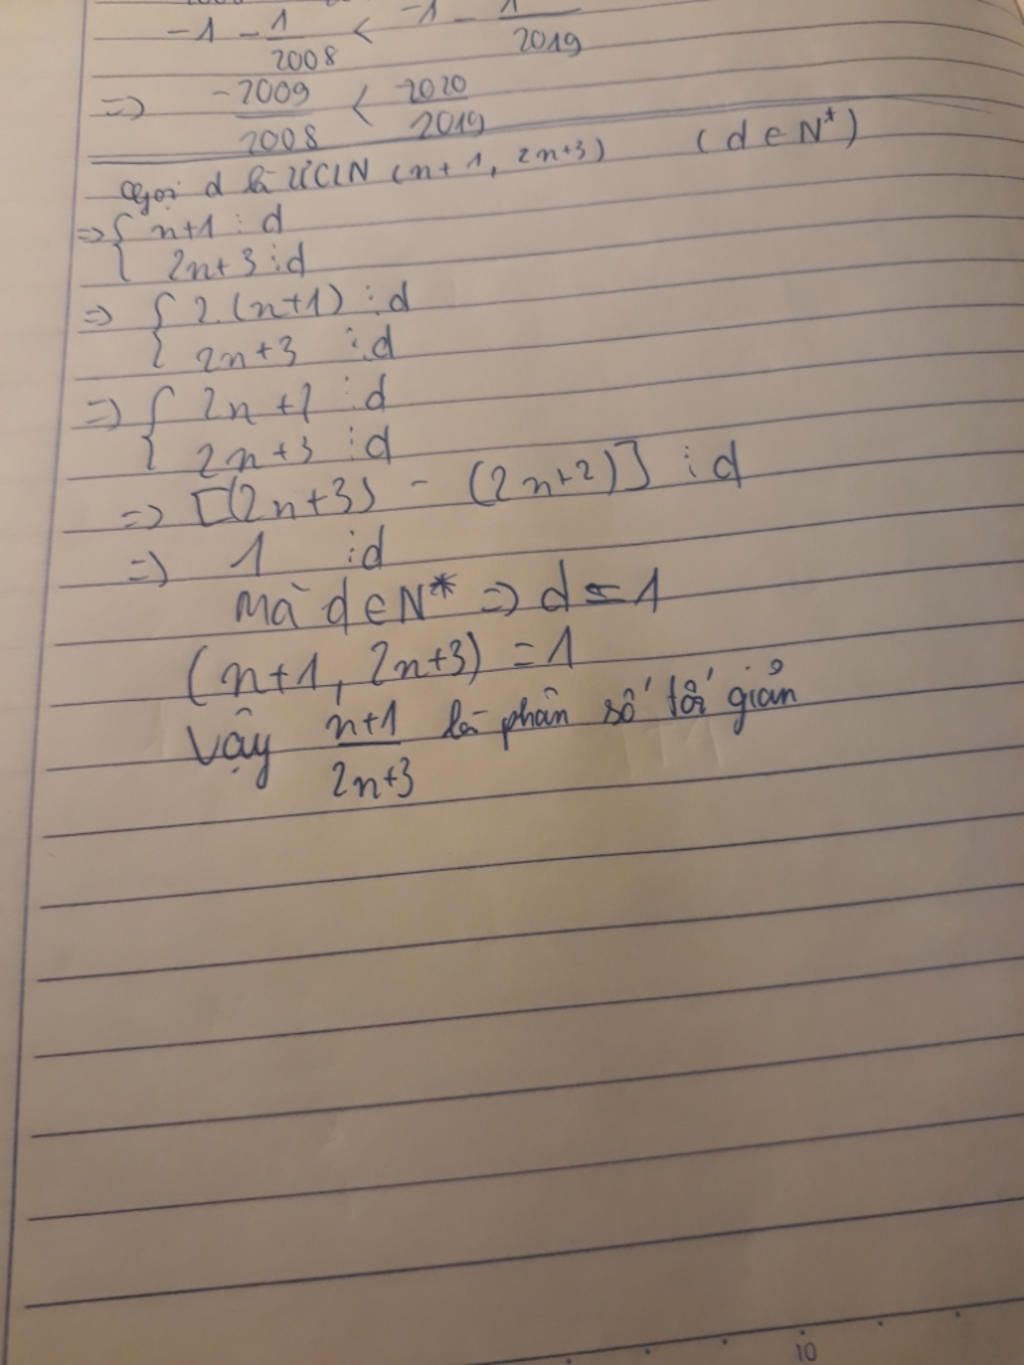 -1 - 1/2008 < -1 - 1/2019
=> -2009/2008 < -2020/2019
Gọi d là ƯCLN (n+1, 2n+3) (d ∈ N*)
=> { n+1 ⋮ d
{ 2n+3 ⋮ d
=> { 2.(n+1) ⋮ d
{ 2n+3 ⋮ d
=> { 2n+2 ⋮ d
{ 2n+3 ⋮ d
=> [(2n+3) - (2n+2)] ⋮ d
=> 1 ⋮ d
Mà d ∈ N* => d = 1
(n+1, 2n+3) = 1
Vậy n+1/2n+3 là phân số tối giản
10